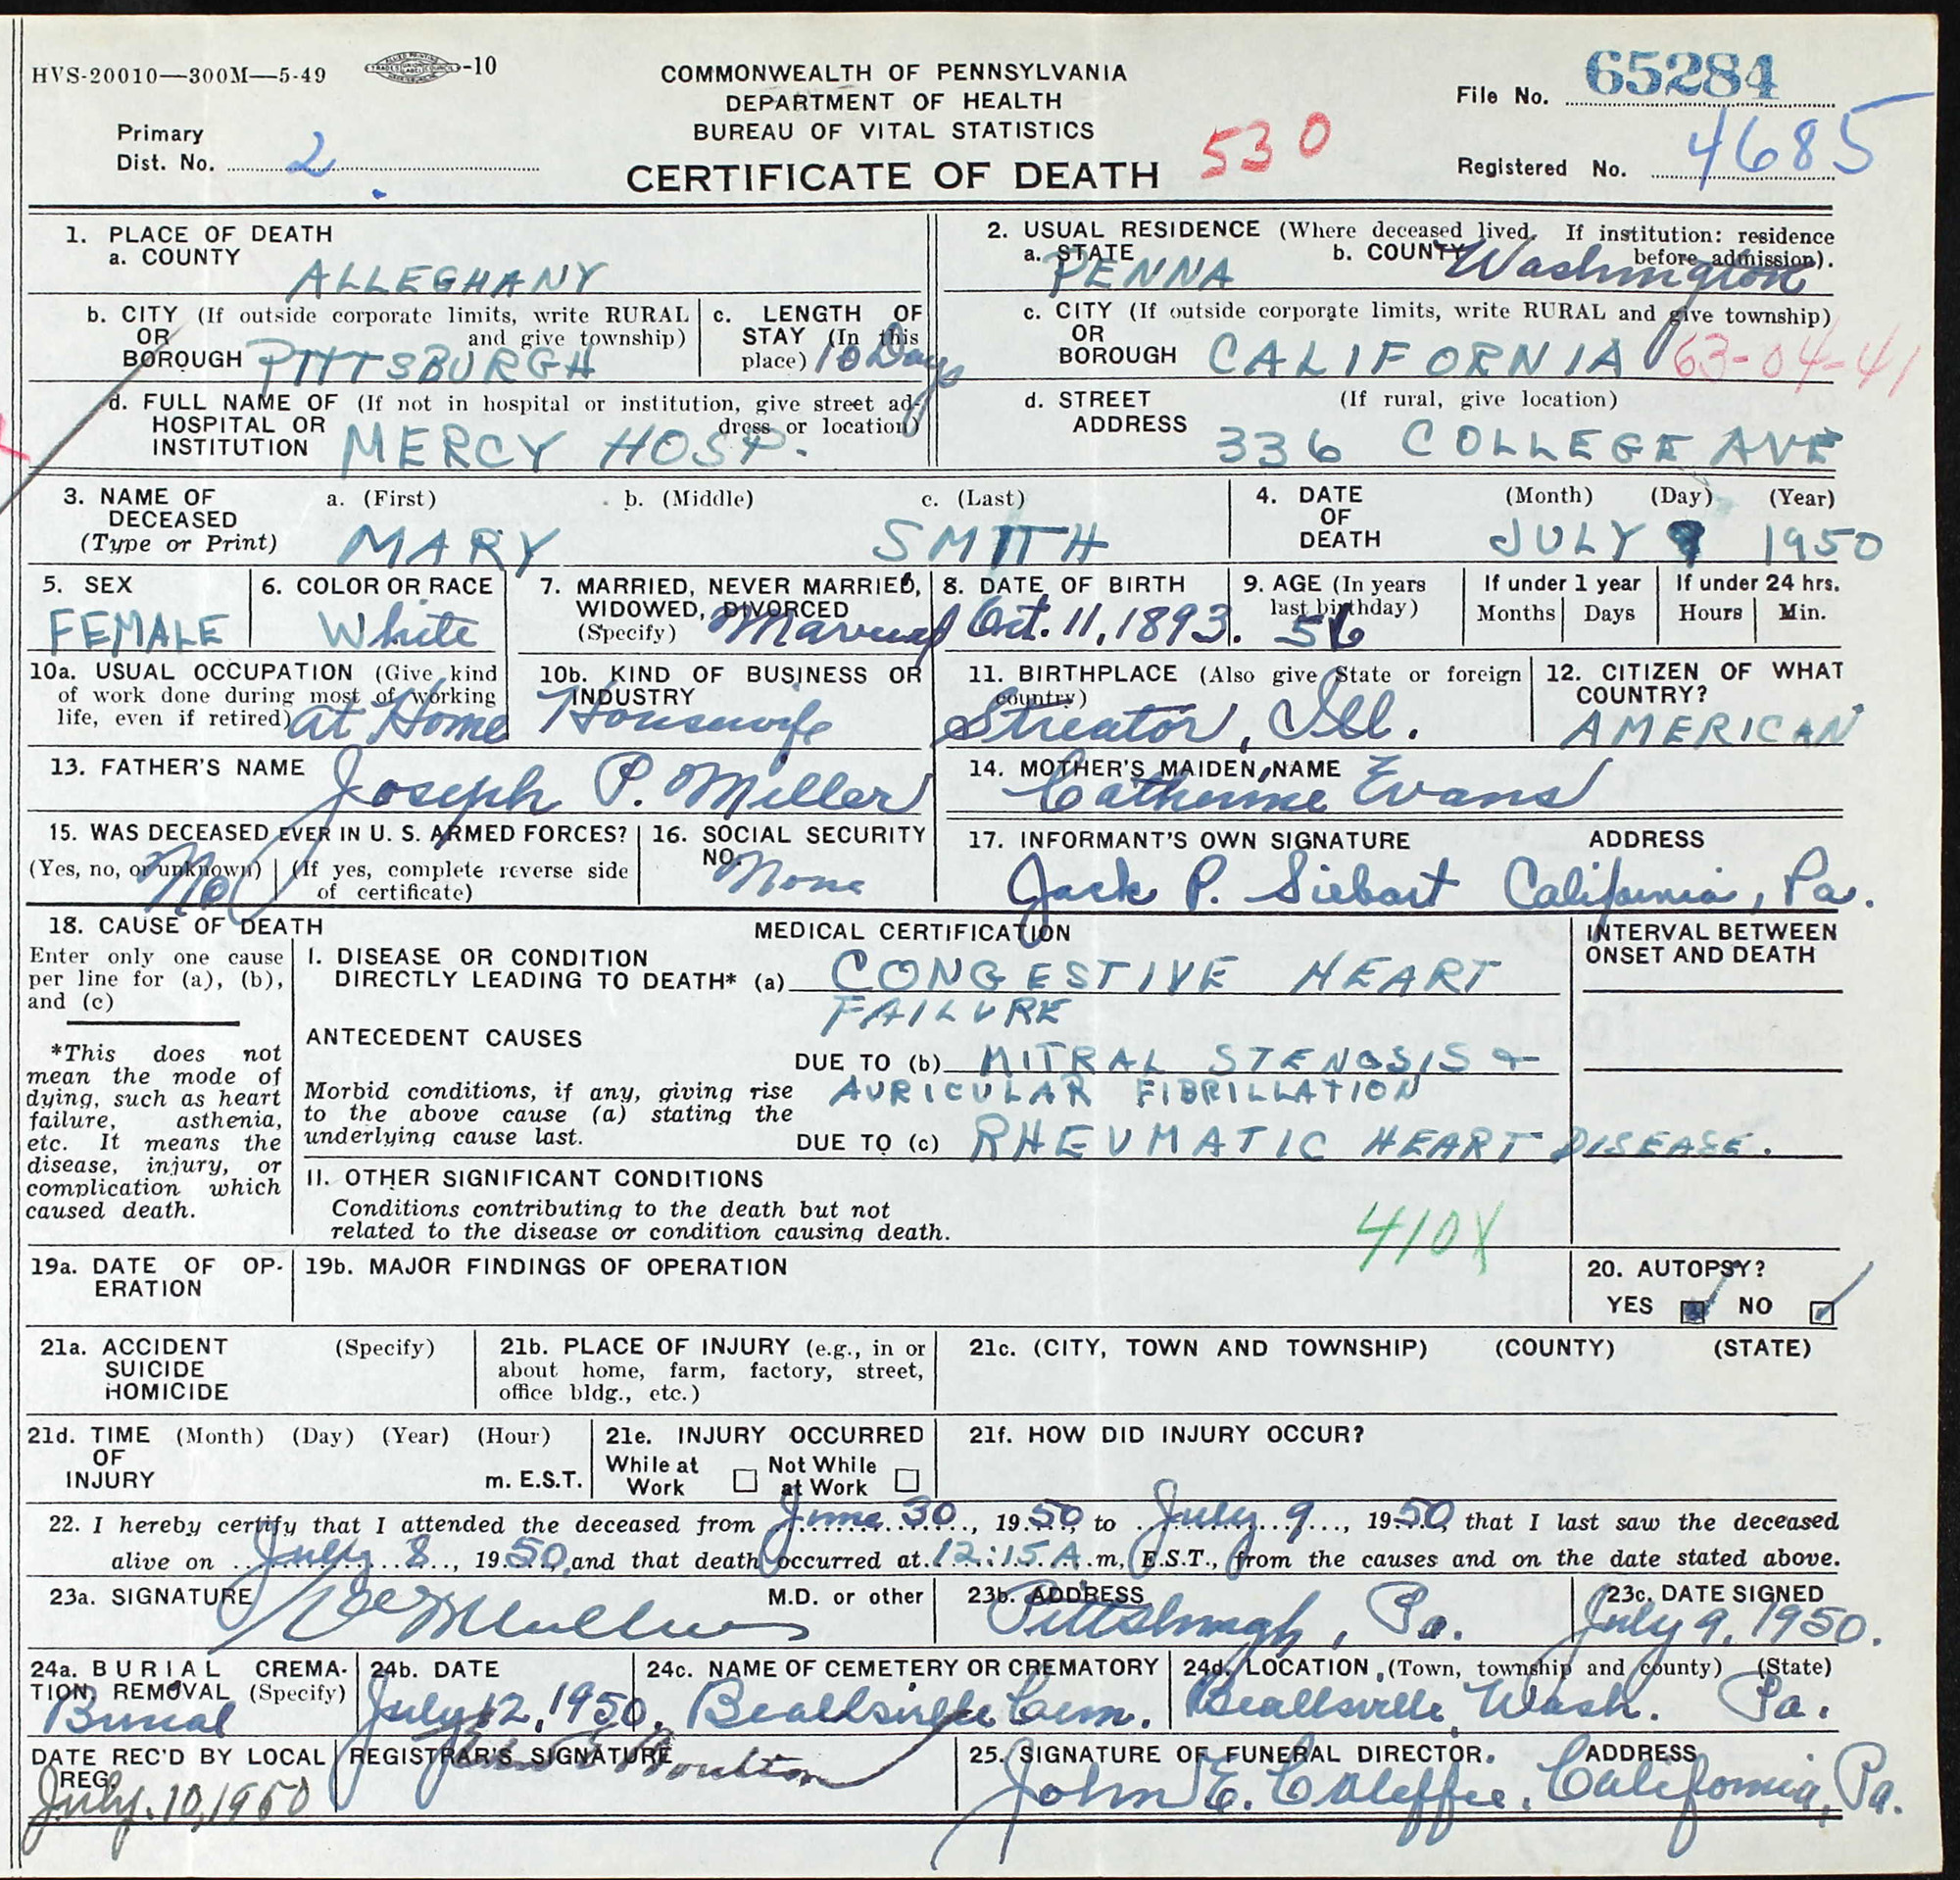 HVS-20010—300M—5-49 -10
COMMONWEALTH OF PENNSYLVANIA
DEPARTMENT OF HEALTH
BUREAU OF VITAL STATISTICS
CERTIFICATE OF DEATH
530
File No. 65284
Primary
Dist. No. 2
Registered No. 4685
1. PLACE OF DEATH
a. COUNTY
ALLEGHANY
2. USUAL RESIDENCE (Where deceased lived. If institution: residence
before admission).
a. STATE b. COUNTY
PENNA Washington
b. CITY (If outside corporate limits, write RURAL
OR and give township)
BOROUGH PITTSBURGH
c. LENGTH OF
STAY (In this
place) 10 Days
c. CITY (If outside corporate limits, write RURAL and give township)
OR
BOROUGH CALIFORNIA 63-04-41
d. FULL NAME OF (If not in hospital or institution, give street ad-
HOSPITAL OR dress or location)
INSTITUTION MERCY HOSP.
d. STREET (If rural, give location)
ADDRESS
336 COLLEGE AVE
3. NAME OF
DECEASED
(Type or Print)
a. (First) b. (Middle) c. (Last)
MARY SMITH
4. DATE
OF
DEATH
(Month) (Day) (Year)
JULY 9 1950
5. SEX
FEMALE
6. COLOR OR RACE
White
7. MARRIED, NEVER MARRIED,
WIDOWED, DIVORCED
(Specify) Married
8. DATE OF BIRTH
Oct. 11, 1893.
9. AGE (In years
last birthday)
56
If under 1 year
Months Days
If under 24 hrs.
Hours Min.
10a. USUAL OCCUPATION (Give kind
of work done during most of working
life, even if retired) at Home
10b. KIND OF BUSINESS OR
INDUSTRY
Housewife
11. BIRTHPLACE (Also give State or foreign
country)
Streator, Ill.
12. CITIZEN OF WHAT
COUNTRY?
AMERICAN
13. FATHER'S NAME
Joseph P. Miller
14. MOTHER'S MAIDEN NAME
Catherine Evans
15. WAS DECEASED EVER IN U. S. ARMED FORCES?
(Yes, no, or unknown) (If yes, complete reverse side
of certificate)
No
16. SOCIAL SECURITY
NO.
None
17. INFORMANT'S OWN SIGNATURE ADDRESS
Jack P. Siebart California, Pa.
18. CAUSE OF DEATH
Enter only one cause
per line for (a), (b),
and (c)
*This does not
mean the mode of
dying, such as heart
failure, asthenia,
etc. It means the
disease, injury, or
complication which
caused death.
MEDICAL CERTIFICATION
INTERVAL BETWEEN
ONSET AND DEATH
I. DISEASE OR CONDITION
DIRECTLY LEADING TO DEATH* (a) CONGESTIVE HEART
FAILURE
ANTECEDENT CAUSES
DUE TO (b) MITRAL STENOSIS &
AURICULAR FIBRILLATION
Morbid conditions, if any, giving rise
to the above cause (a) stating the
underlying cause last.
DUE TO (c) RHEUMATIC HEART DISEASE.
II. OTHER SIGNIFICANT CONDITIONS
Conditions contributing to the death but not
related to the disease or condition causing death.
410X
19a. DATE OF OP-
ERATION
19b. MAJOR FINDINGS OF OPERATION
20. AUTOPSY?
YES NO
21a. ACCIDENT (Specify)
SUICIDE
HOMICIDE
21b. PLACE OF INJURY (e.g., in or
about home, farm, factory, street,
office bldg., etc.)
21c. (CITY, TOWN AND TOWNSHIP) (COUNTY) (STATE)
21d. TIME (Month) (Day) (Year) (Hour)
OF
INJURY m. E.S.T.
21e. INJURY OCCURRED
While at Not While
Work at Work
21f. HOW DID INJURY OCCUR?
22. I hereby certify that I attended the deceased from June 30, 1950, to July 9, 1950, that I last saw the deceased
alive on July 8, 1950, and that death occurred at 12:15 A.m., E.S.T., from the causes and on the date stated above.
23a. SIGNATURE M.D. or other
23b. ADDRESS
Pittsburgh, Pa.
23c. DATE SIGNED
July 9, 1950.
24a. BURIAL CREMA-
TION, REMOVAL (Specify)
Burial
24b. DATE
July 12, 1950.
24c. NAME OF CEMETERY OR CREMATORY
Beallsville Cem.
24d. LOCATION (Town, township and county) (State)
Beallsville, Wash. Pa.
DATE REC'D BY LOCAL
REG.
July. 10, 1950
REGISTRAR'S SIGNATURE
25. SIGNATURE OF FUNERAL DIRECTOR. ADDRESS
John E. California, Pa.